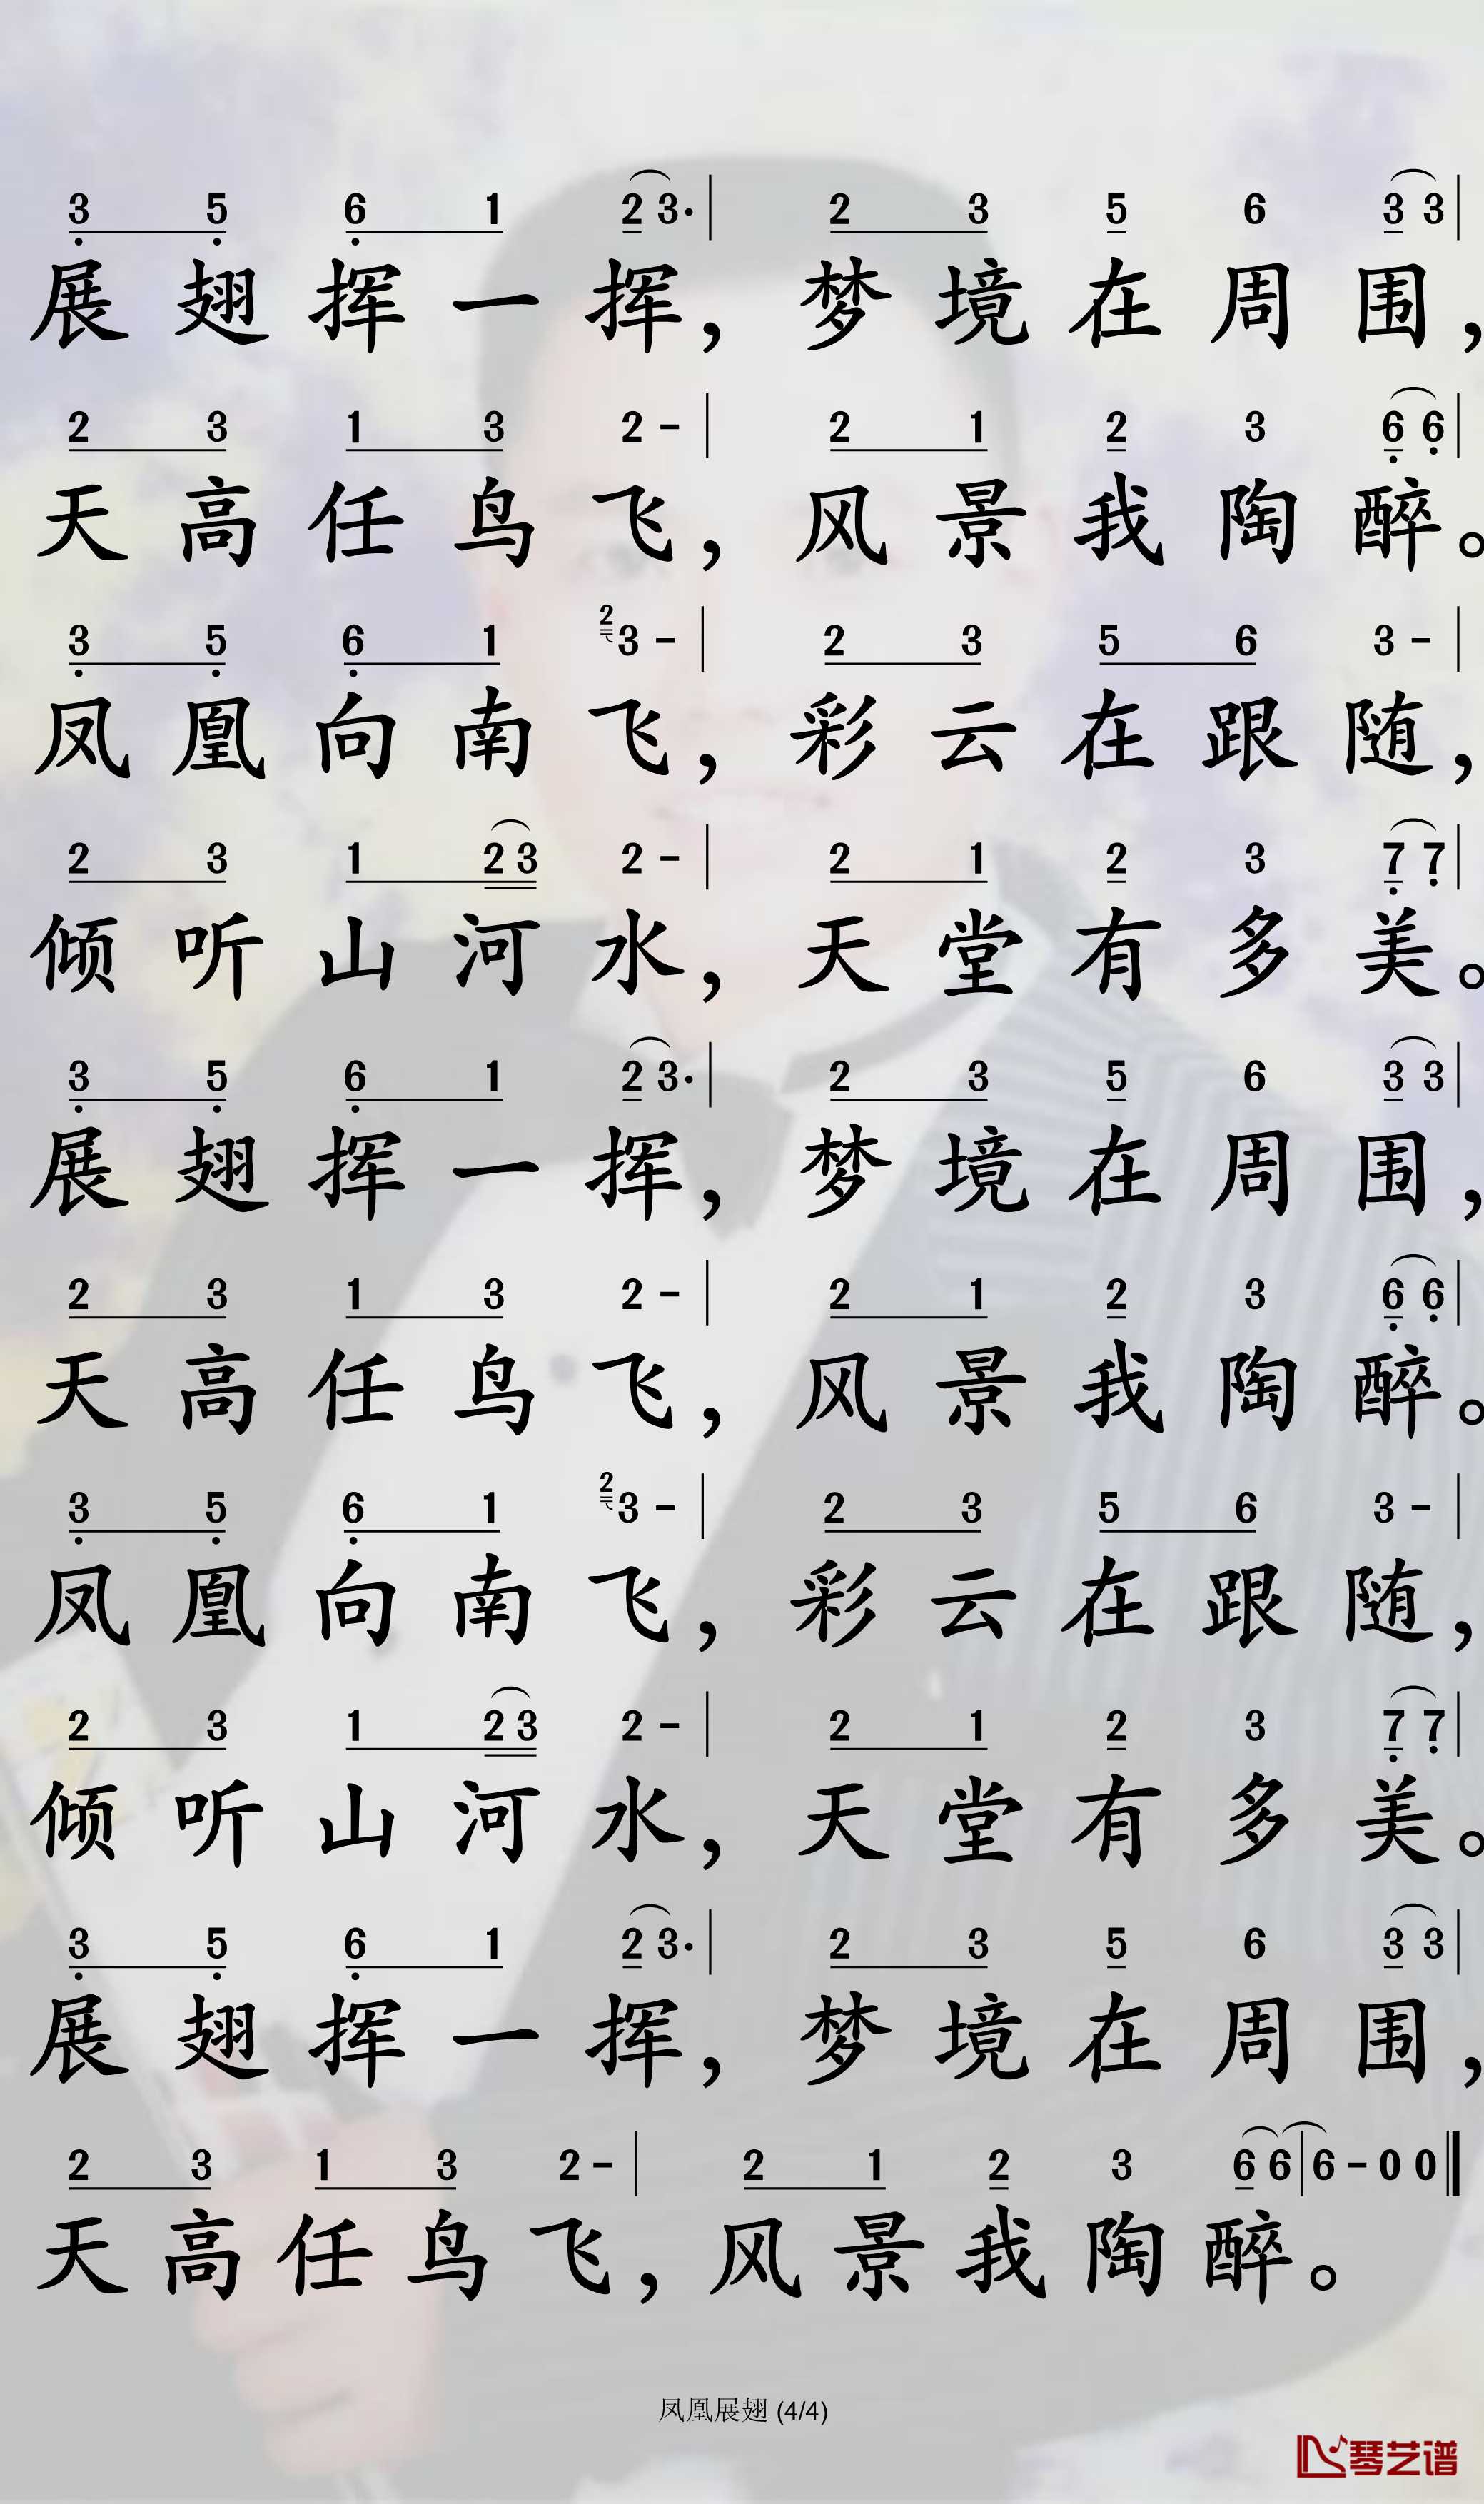 3 5 6 1 2 3· | 2 3 5 6 3 3 |
展翅挥一挥，梦境在周围，
2 3 1 3 2 - | 2 1 2 3 6 6 |
天高任鸟飞，风景我陶醉。
3 5 6 1 2 3 - | 2 3 5 6 3 - |
凤凰向南飞，彩云在跟随，
2 3 1 2 3 2 - | 2 1 2 3 7 7 |
倾听山河水，天堂有多美。
3 5 6 1 2 3· | 2 3 5 6 3 3 |
展翅挥一挥，梦境在周围，
2 3 1 3 2 - | 2 1 2 3 6 6 |
天高任鸟飞，风景我陶醉。
3 5 6 1 2 3 - | 2 3 5 6 3 - |
凤凰向南飞，彩云在跟随，
2 3 1 2 3 2 - | 2 1 2 3 7 7 |
倾听山河水，天堂有多美。
3 5 6 1 2 3· | 2 3 5 6 3 3 |
展翅挥一挥，梦境在周围，
2 3 1 3 2 - | 2 1 2 3 6 6 | 6 - 0 0 ‖
天高任鸟飞，风景我陶醉。
凤凰展翅 (4/4)
琴艺谱